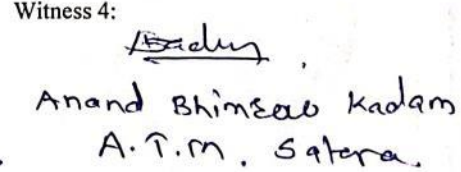 Witness 4:
Anand Bhimrao Kadam
A.T.M. Satara.